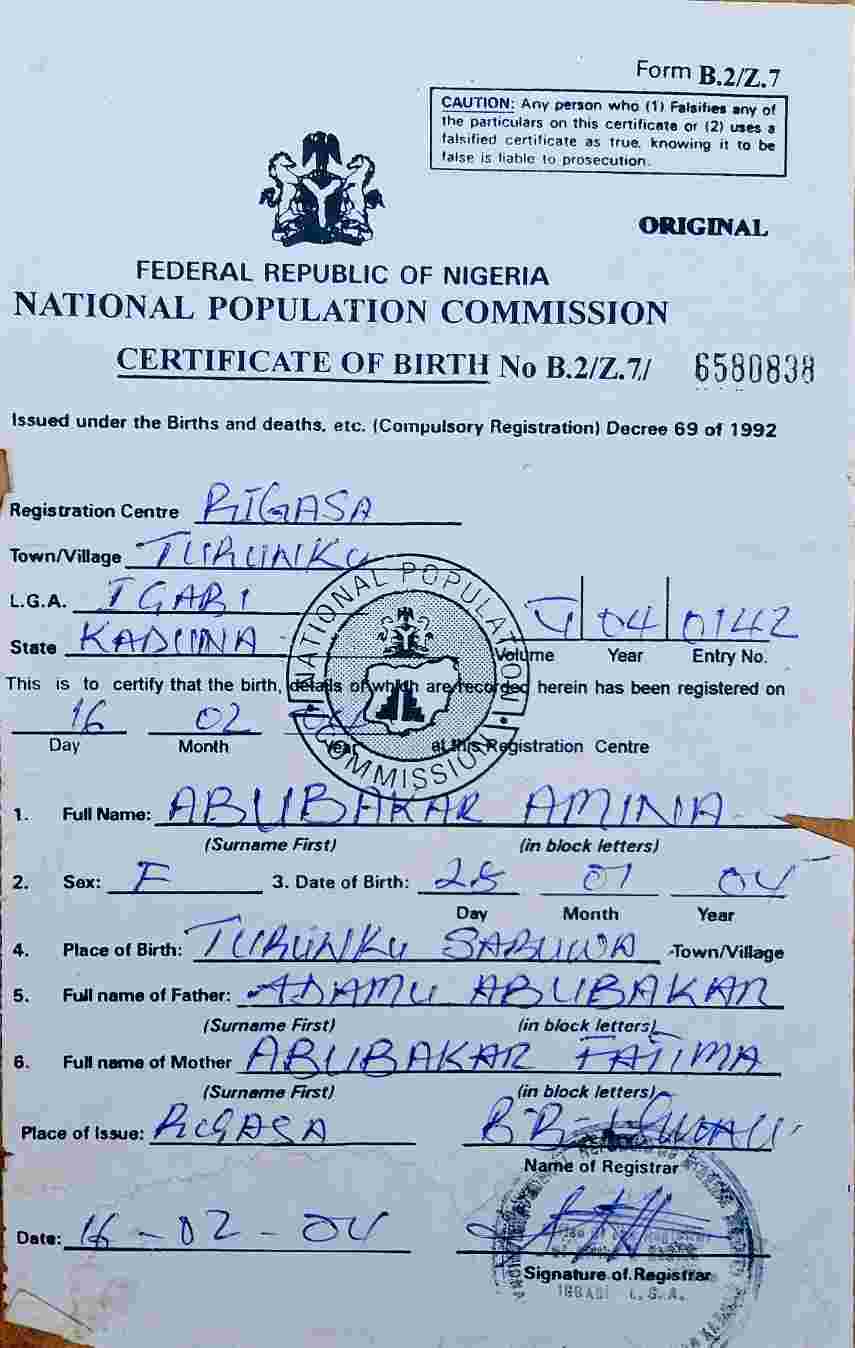 Form B.2/Z.7
CAUTION: Any person who (1) Falsifies any of
the particulars on this certificate or (2) uses a
falsified certificate as true, knowing it to be
false is liable to prosecution.
ORIGINAL
FEDERAL REPUBLIC OF NIGERIA
NATIONAL POPULATION COMMISSION
CERTIFICATE OF BIRTH No B.2/Z.7/ 6580838
Issued under the Births and deaths, etc. (Compulsory Registration) Decree 69 of 1992
Registration Centre RIGASA
Town/Village TURUNKU
L.G.A. IGABI
State KADUNA
04 0142
Volume Year Entry No.
NATIONAL POPULATION COMMISSION
This is to certify that the birth, details of which are recorded herein has been registered on
16 02 04
Day Month Year at this Registration Centre
1. Full Name: ABUBAKAR AMINA
(Surname First) (in block letters)
2. Sex: F 3. Date of Birth: 28 01 04
Day Month Year
4. Place of Birth: TURUNKU SABUWA -Town/Village
5. Full name of Father: ADAMU ABUBAKAR
(Surname First) (in block letters)
6. Full name of Mother ABUBAKAR FATIMA
(Surname First) (in block letters)
Place of Issue: RIGASA
Name of Registrar
Date: 16-02-04
Signature of Registrar
IGGABI L.G.A.